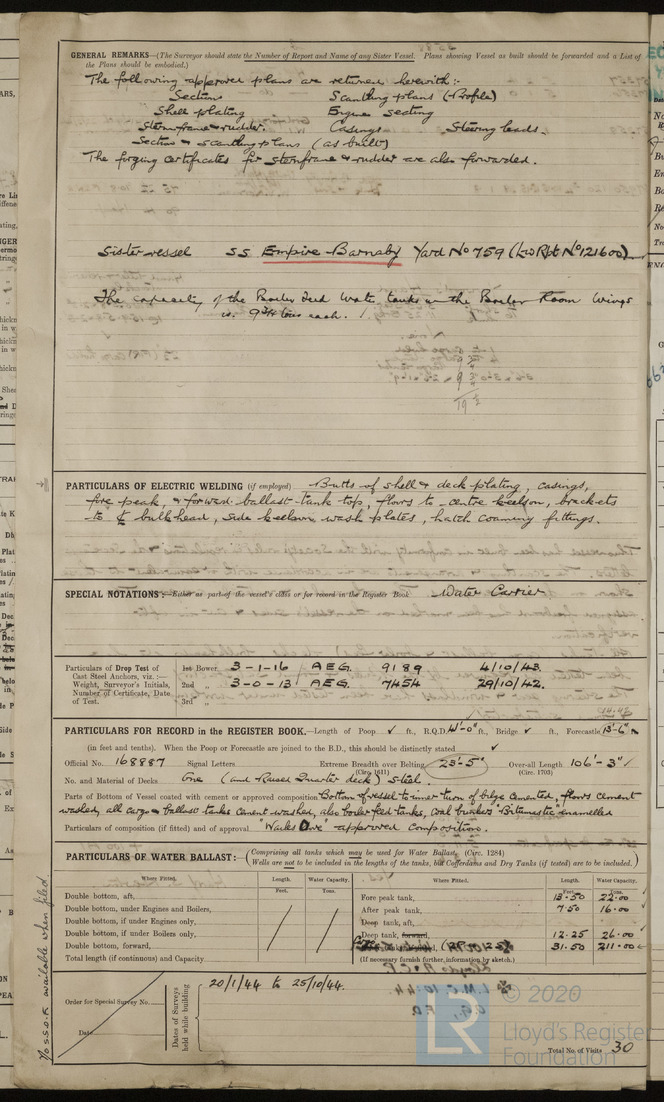 GENERAL REMARKS—(The Surveyor should state the Number of Report and Name of any Sister Vessel. Plans showing Vessel as built should be forwarded and a List of
the Plans should be embodied.)
The following approved plans are returned herewith:-
Sections Scantling plans (+Profile)
Shell plating Engine seating
Sternframe & rudder. Casings Steering leads.
Section & Scantling plans (as built)
The forging certificates for sternframe & rudder are also forwarded.
Sister vessel SS Empire Barnaby Yard No 759 (Lw Rpt No 121600)
The capacity of the Boiler Feed Water tanks in the Boiler Room Wings
is 9 3/4 tons each.
PARTICULARS OF ELECTRIC WELDING (if employed) Butts of shell & deck plating, casings,
fore peak, & forward ballast tank top, floors to centre keelson, brackets
to ℄ bulkhead, side keelsons, wash plates, hatch coaming fittings.
SPECIAL NOTATIONS:—Either as part of the vessel's class or for record in the Register Book Water Carrier
Particulars of Drop Test of
Cast Steel Anchors, viz.:—
Weight, Surveyor's Initials,
Number of Certificate, Date
of Test.
1st Bower 3-1-16 AEG. 9189 4/10/43.
2nd „ 3-0-13 AEG. 7454 29/10/42.
3rd „
PARTICULARS FOR RECORD in the REGISTER BOOK.—Length of Poop ✓ ft., R.Q.D. 41'-0" ft., Bridge ✓ ft., Forecastle 13'-6"
(in feet and tenths). When the Poop or Forecastle are joined to the B.D., this should be distinctly stated ✓
Official No. 168887 Signal Letters Extreme Breadth over Belting 23'-5" Over-all Length 106'-3"
(Circ. 1611) (Circ. 1703)
No. and Material of Decks One (and Raised Quarter deck) Steel.
Parts of Bottom of Vessel coated with cement or approved composition Bottom of vessel to inner turn of bilge cemented, floors cement
washed, all cargo & ballast tanks cement washed, also boiler feed tanks, coal bunkers "Bitumastic" enamelled
Particulars of composition (if fitted) and of approval approved Composition.
PARTICULARS OF WATER BALLAST:— (Comprising all tanks which may be used for Water Ballast. (Circ. 1284)
Wells are not to be included in the lengths of the tanks, but Cofferdams and Dry Tanks (if tested) are to be included.)
Where Fitted. Length. Water Capacity. Where Fitted. Length. Water Capacity.
Feet. Tons. Feet. Tons.
Double bottom, aft, Fore peak tank, 13.50 22.00
Double bottom, under Engines and Boilers, After peak tank, 7.50 16.00
Double bottom, if under Engines only, Deep tank, aft,
Double bottom, if under Boilers only, Deep tank, forward, 12.25 26.00
Double bottom, forward, 31.50 211.00
Total length (if continuous) and Capacity (If necessary furnish further information by sketch.)
Order for Special Survey No.
Date
Dates of Surveys
held while building
20/1/44 to 25/10/44.
Total No. of Visits 30
No S.S.O.F. available when filed
© 2020
LR
Lloyd's Register
Foundation